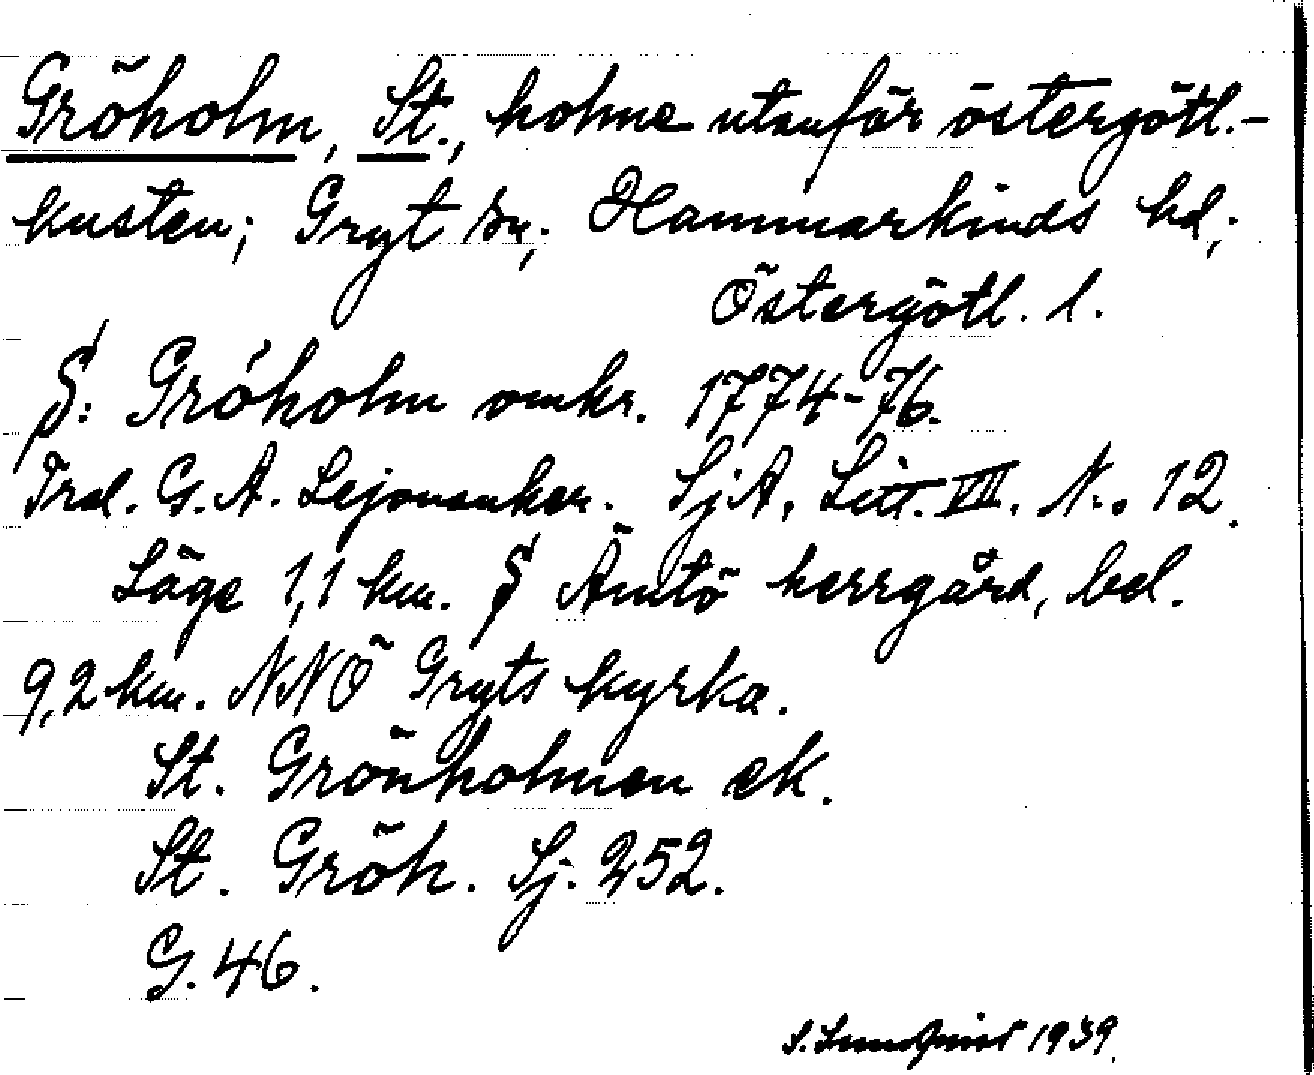 Gröholm, St., holme utanför östergötl.-
kusten; Gryt sn; Hammarkinds hd;
Östergötl. l.
§: Gröholm omkr. 1774-76.
Trol. G. A. Lejonanker. SjA, Litt. VII. N:o 12.
Läge 1,1 km. § Ämtö herrgård, bel.
9,2 km. NNÖ Gryts kyrka.
St. Grönholmen ek.
St. Gröh. Sj. 252.
G. 46.
S. Lundquist 1939.